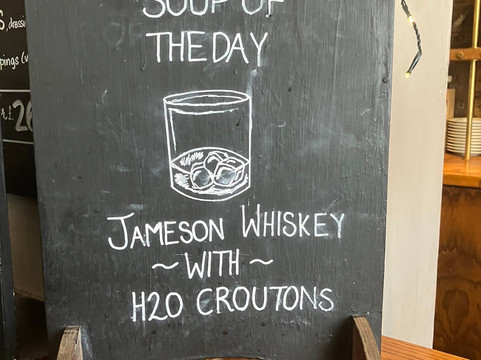 SOUP OF
THE DAY
JAMESON WHISKEY
~ WITH ~
H2O CROUTONS